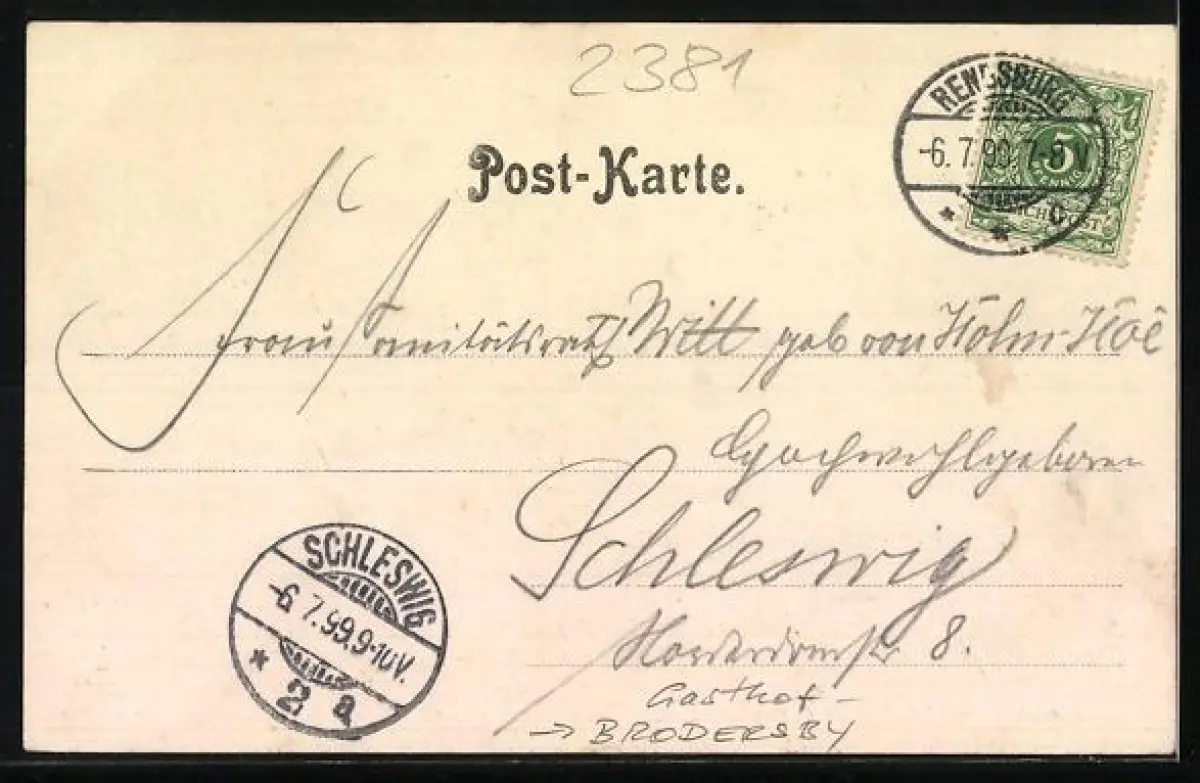 2381
Post-Karte.
RENDSBURG
-6.7.99. 7-8V
* * c
5
PFENNIG
REICHSPOST
Frau Sanitätsrath Witt geb von Holm-Hoë
Hochwohlgeboren
Schleswig
Norderdomstr 8.
SCHLESWIG
-6.7.99.9-10V.
* 2 a
Gasthof -
→ BRODERSBY